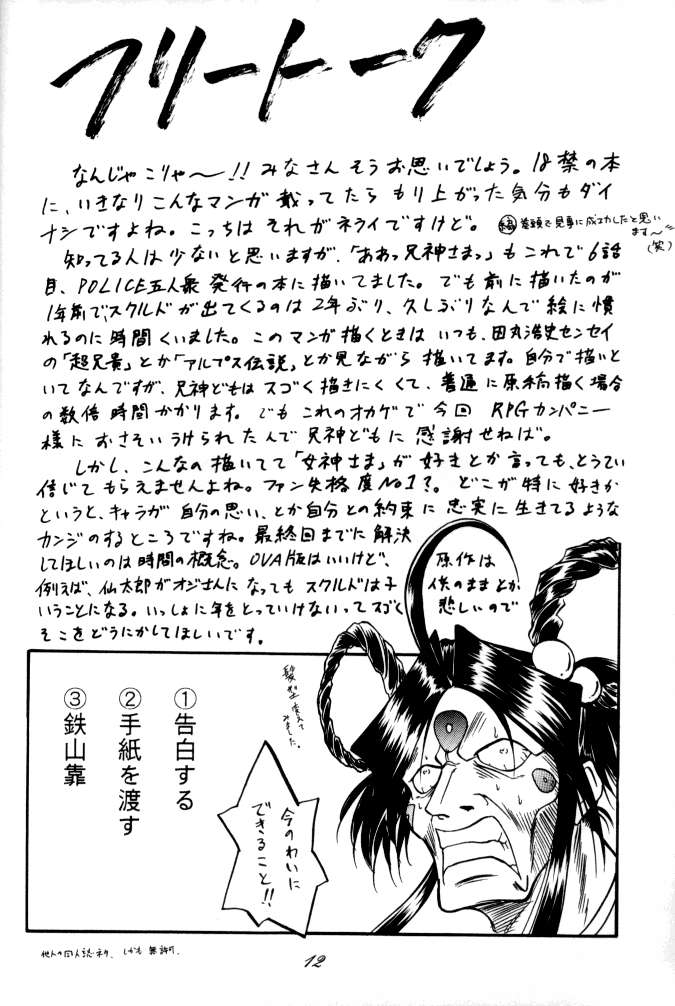 フリートーク
なんじゃこりゃ〜!!みなさんそうお思いでしょう。18禁の本
に、いきなりこんなマンガ載ってたらもり上がった気分もダイ
ナシですよね。こっちはそれがネライですけど。
編 巻頭で見事に成功したと思い
ます〜
(笑)
知ってる人は少ないと思いますが、「ああっ兄神さまっ」もこれで6話
目、POLICE五人衆発行の本に描いてました。でも前に描いたのが
1年前で、スクルドが出てくるのは2年ぶり、久しぶりなんで絵に慣
れるのに時間くいました。このマンガ描くときはいつも、田丸浩史センセイ
の「超兄貴」とか「アルプス伝説」とか見ながら描いてます。自分で描いと
いてなんですが、兄神どもはスゴく描きにくくて、普通に原稿描く場合
の数倍時間かかります。でもこれのオカゲで今回RPGカンパニー
様におさそいうけられたんで兄神どもに感謝せねば。
しかし、こんなの描いてて「女神さま」が好きとか言っても、とうてい
信じてもらえませんよね。ファン失格度No.1?。どこが特に好きか
というと、キャラが自分の思い、とか自分との約束に忠実に生きてるような
カンジのするところですね。最終回までに解決
してほしいのは時間の概念。OVA版はいいけど、原作は
例えば、仙太郎がオジさんになってもスクルドは子供のままとか
いうことになる。いっしょに年をとっていけないってスゴく悲しいので
そこをどうにかしてほしいです。
髪型変えて
みました。
①告白する
②手紙を渡す
③鉄山靠
今のわいに
できること!!
他人の同人誌ネタ。しかも無許可。
12